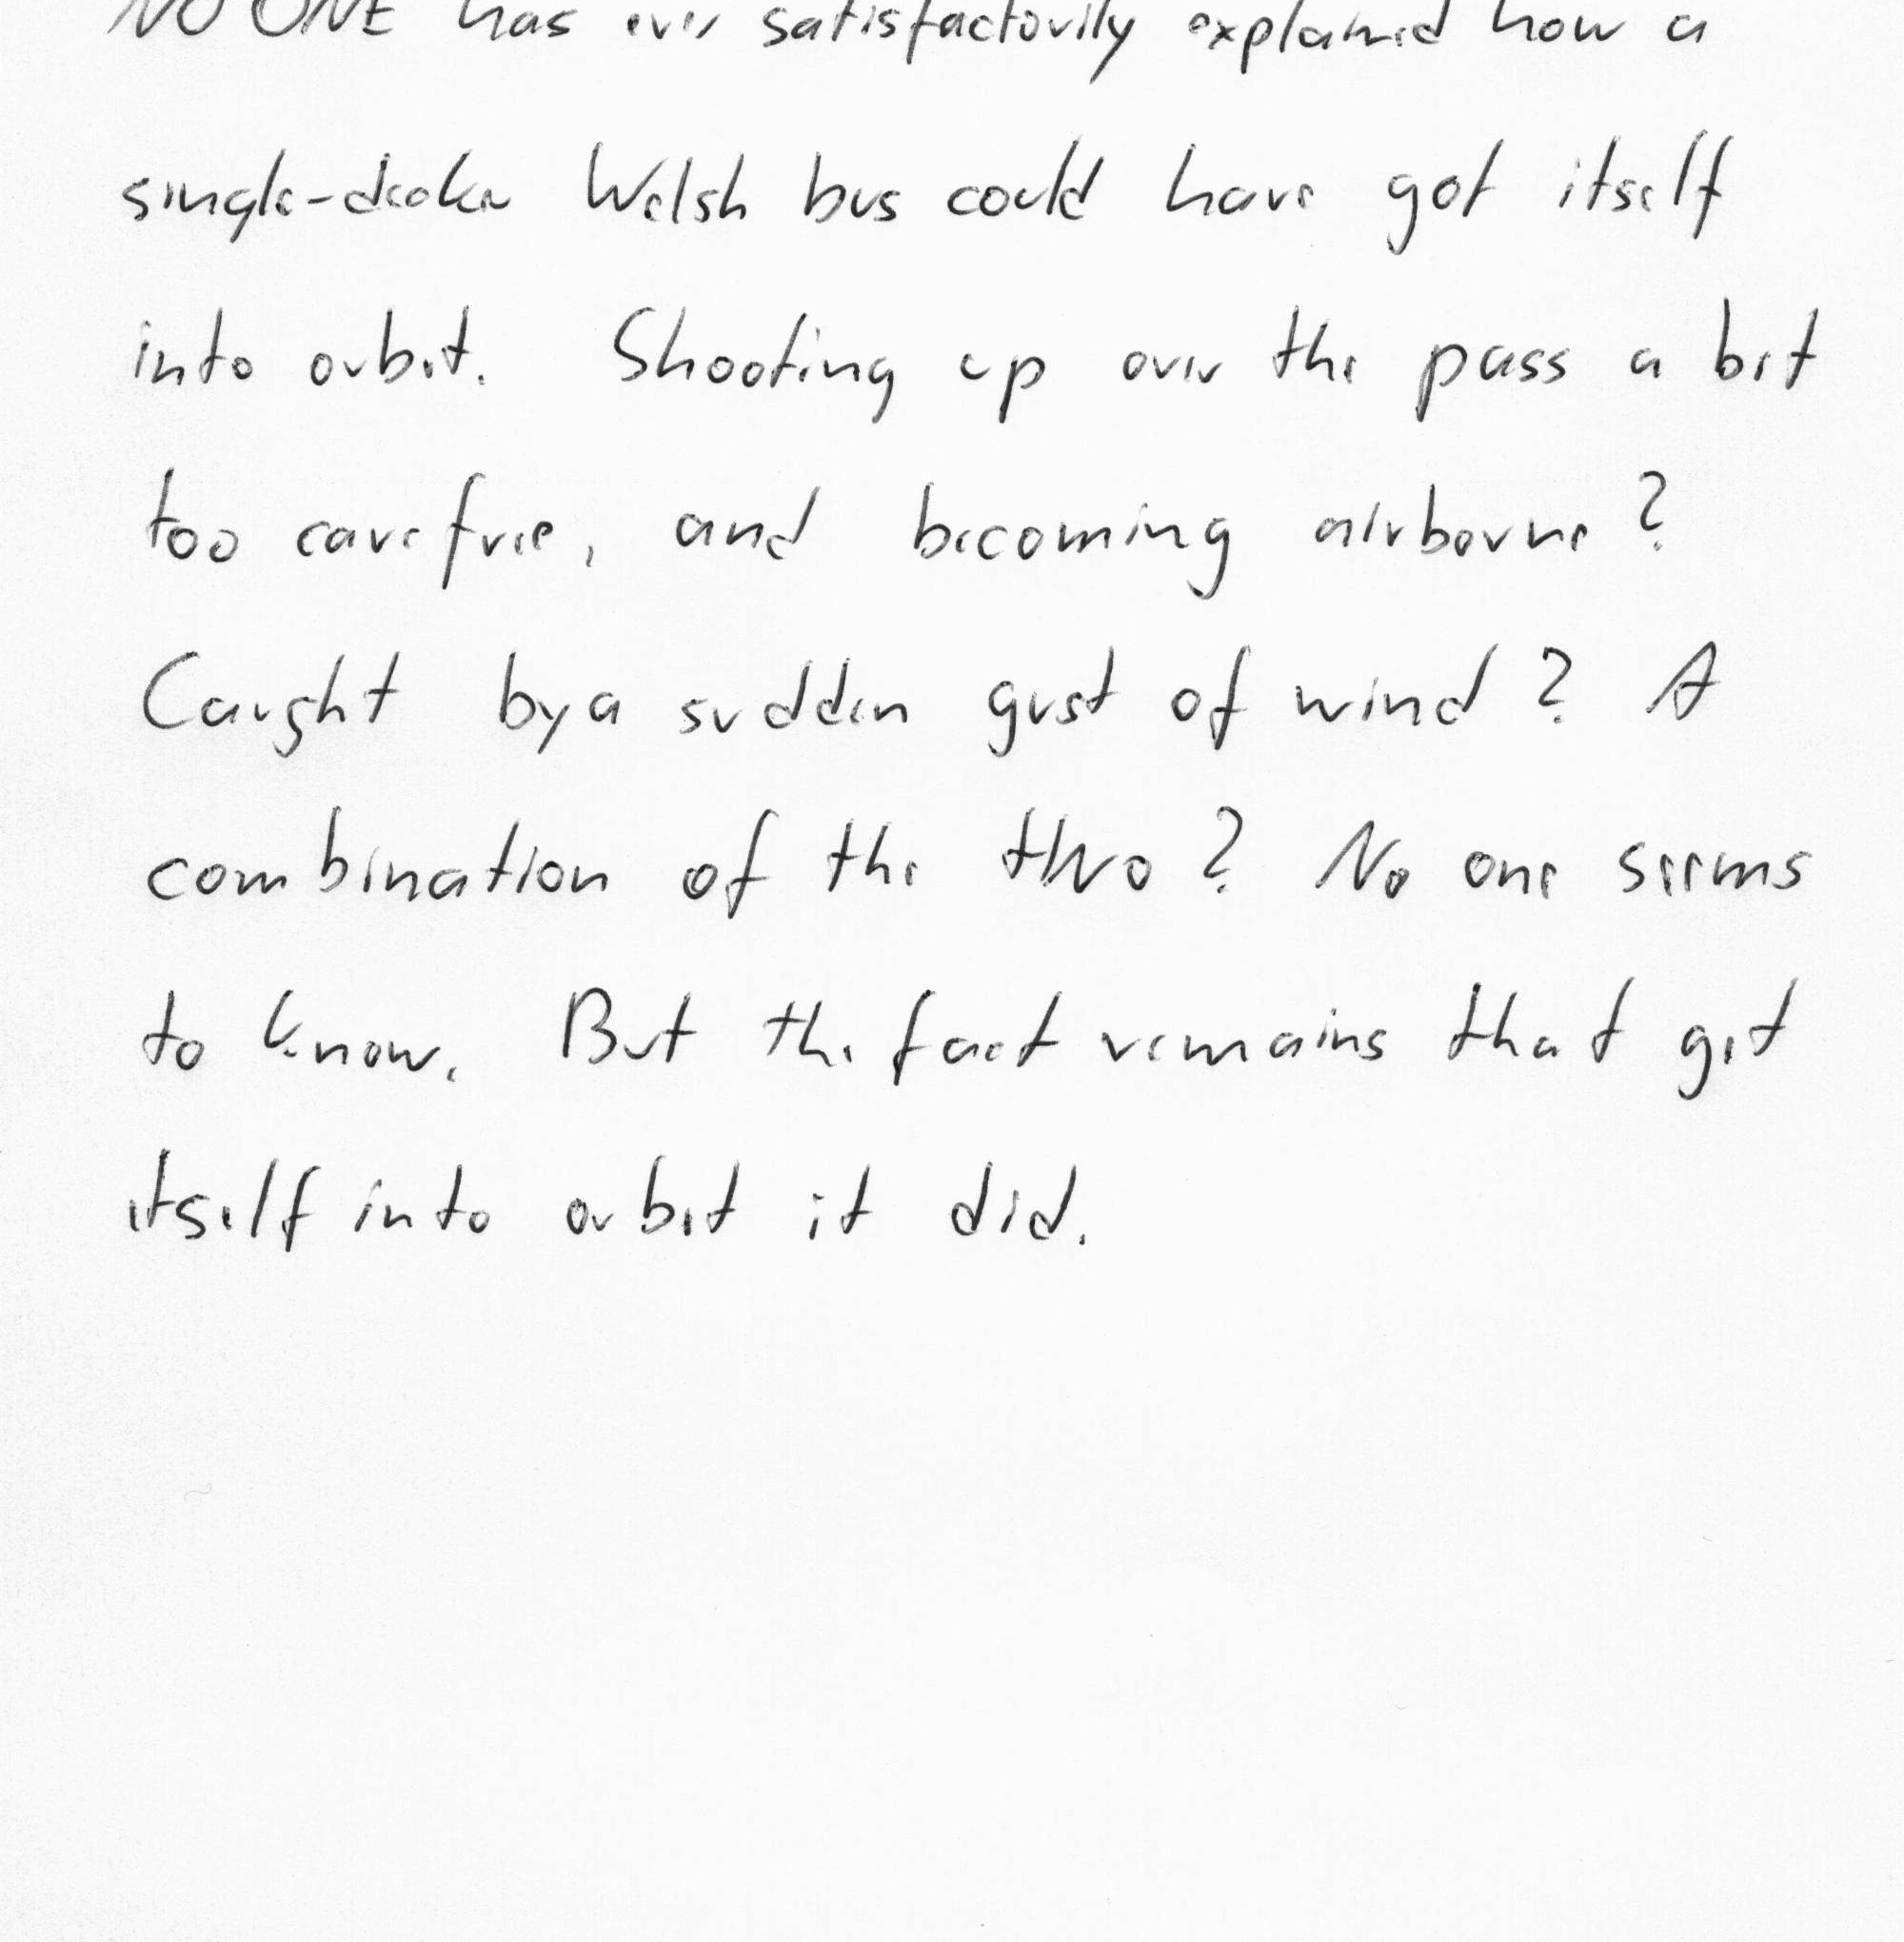 NO ONE has ever satisfactorily explained how a
single-decker Welsh bus could have got itself
into orbit. Shooting up over the pass a bit
too carefree, and becoming airborne?
Caught by a sudden gust of wind? A
combination of the two? No one seems
to know. But the fact remains that get
itself into orbit it did.